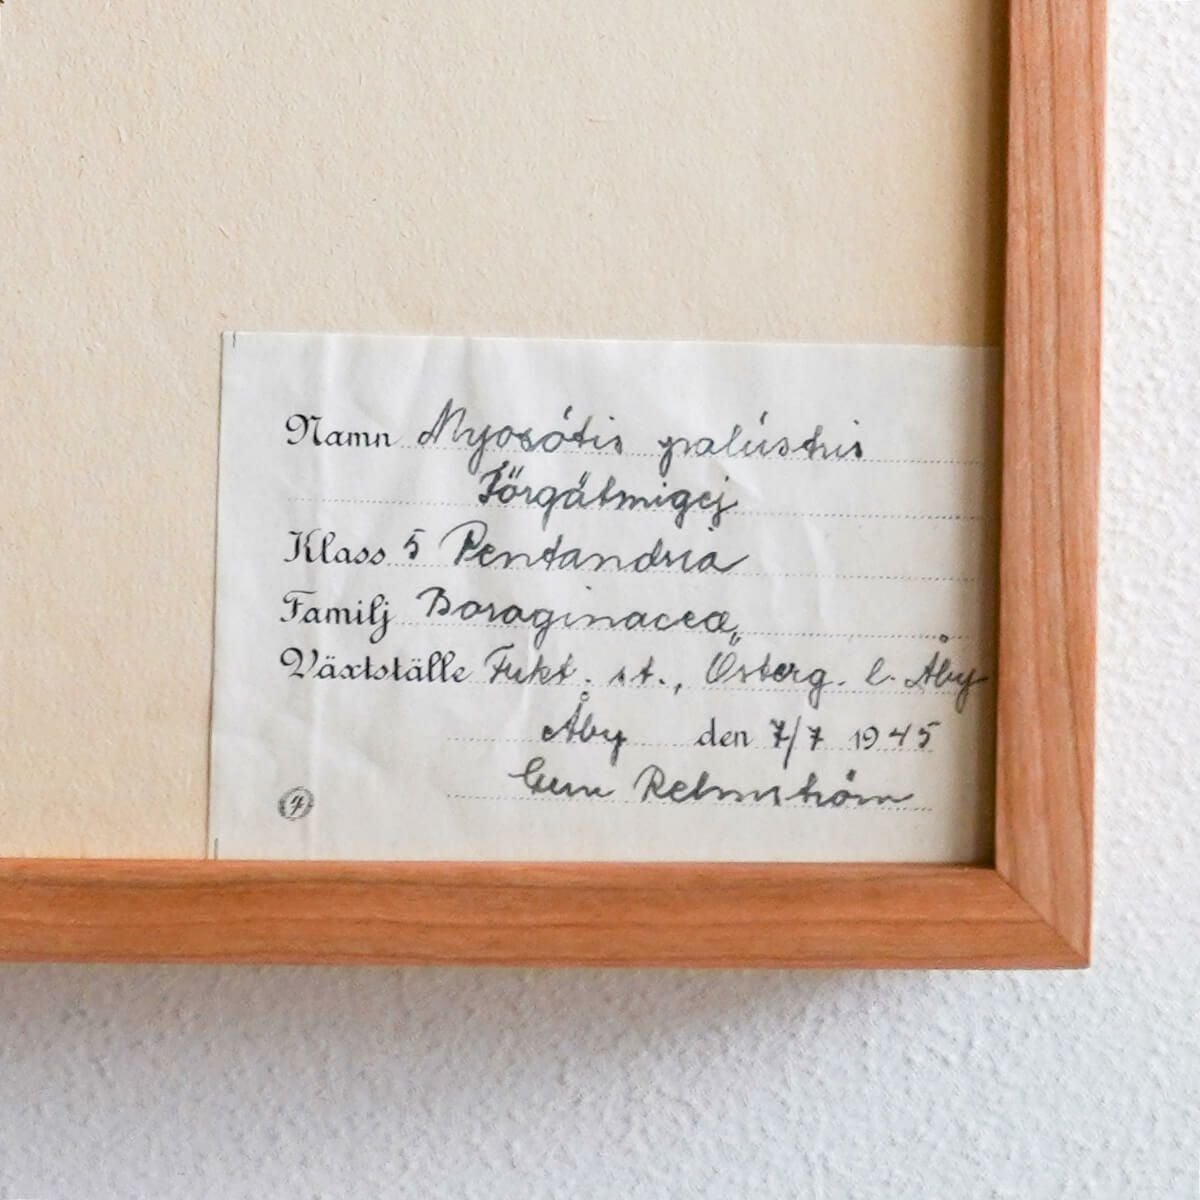 Namn Myosótis palústris
Förgätmigej
Klass 5 Pentandria
Familj Boraginaceæ
Växtställe Fukt. st., Österg. l. Åby
Åby den 7/7 1945
Gun Rehnström
4